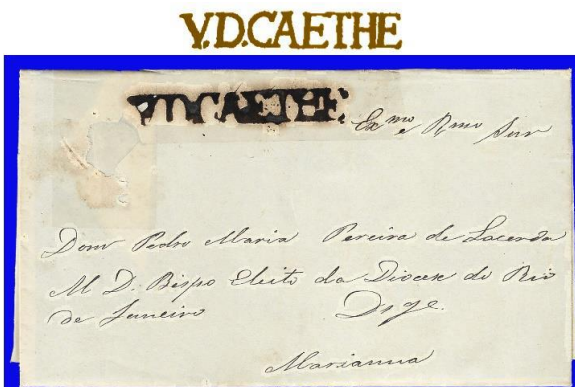 V.D.CAETHE
V.D.CAETHE
Exmo e Rmo Snr
Dom Pedro Maria Pereira de Lacerda
M D. Bispo Eleito da Diocese do Rio
de Janeiro
Marianna